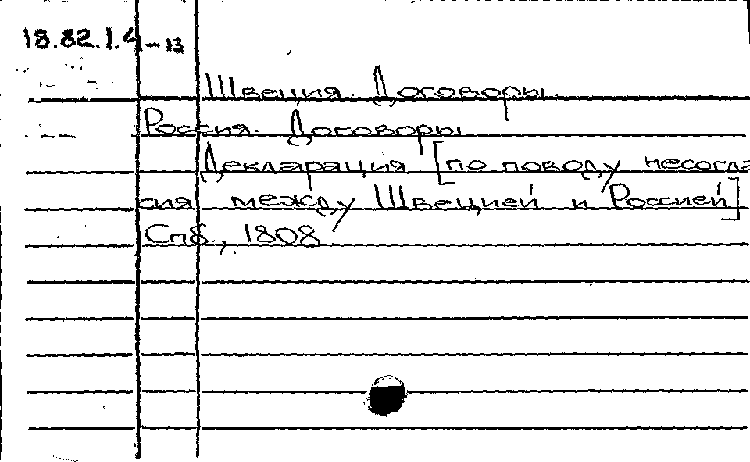 18.82.1.4-13
Швеция. Договоры.
Россия. Договоры.
Декларация [по поводу несогла
сия между Швецией и Россией]
Спб., 1808